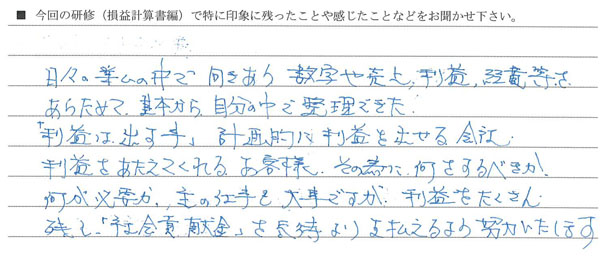 ■ 今回の研修（損益計算書編）で特に印象に残ったことや感じたことなどをお聞かせ下さい。
日々の業ムの中で 向きあう 数字や売上、利益、経費等を
あらためて、基本から、自分の中で整理できた。
「利益は、出す事」 計画的に利益を出せる会社。
利益をあたえてくれる お客様。 その為に、何をするべきか
何が必要か、 の仕事も 大事ですが、利益をたくさん
残し、「社会貢献金」を気持より支払えるよう努力いたします